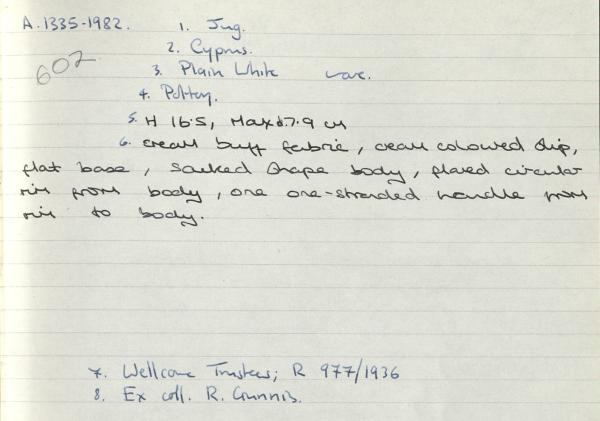 A.1335-1982. 1. Jug.
2. Cyprus.
602
3. Plain White ware.
4. Pottery.
5. H 16.5, Max d 7.9 cm
6. cream buff fabric, cream coloured slip,
flat base, sacked shape body, flared circular
rim from body, one one-stranded handle from
rim to body.
7. Wellcome Trustees; R 977/1936
8. Ex coll. R. Gunnis.